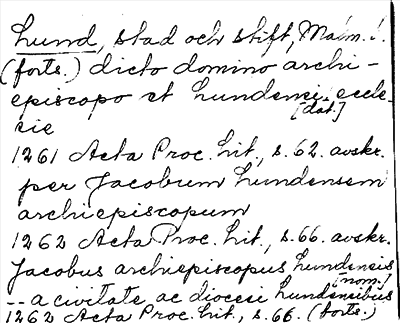 Lund, stad och stift, Malm. l.
(forts.) dicto domino archi-
episcopo et Lundensi eccle-
[dat.]
sie
1261 Acta Proc. Lit., s. 62. avskr.
per Jacobum Lundensem
archiepiscopum
1262 Acta Proc. Lit., s. 66. avskr.
Jacobus archiepiscopus Lundensis
[nom.]
-- a civitate ac diocesi Lundensibus
1262 Acta Proc. Lit., s. 66. (forts.)